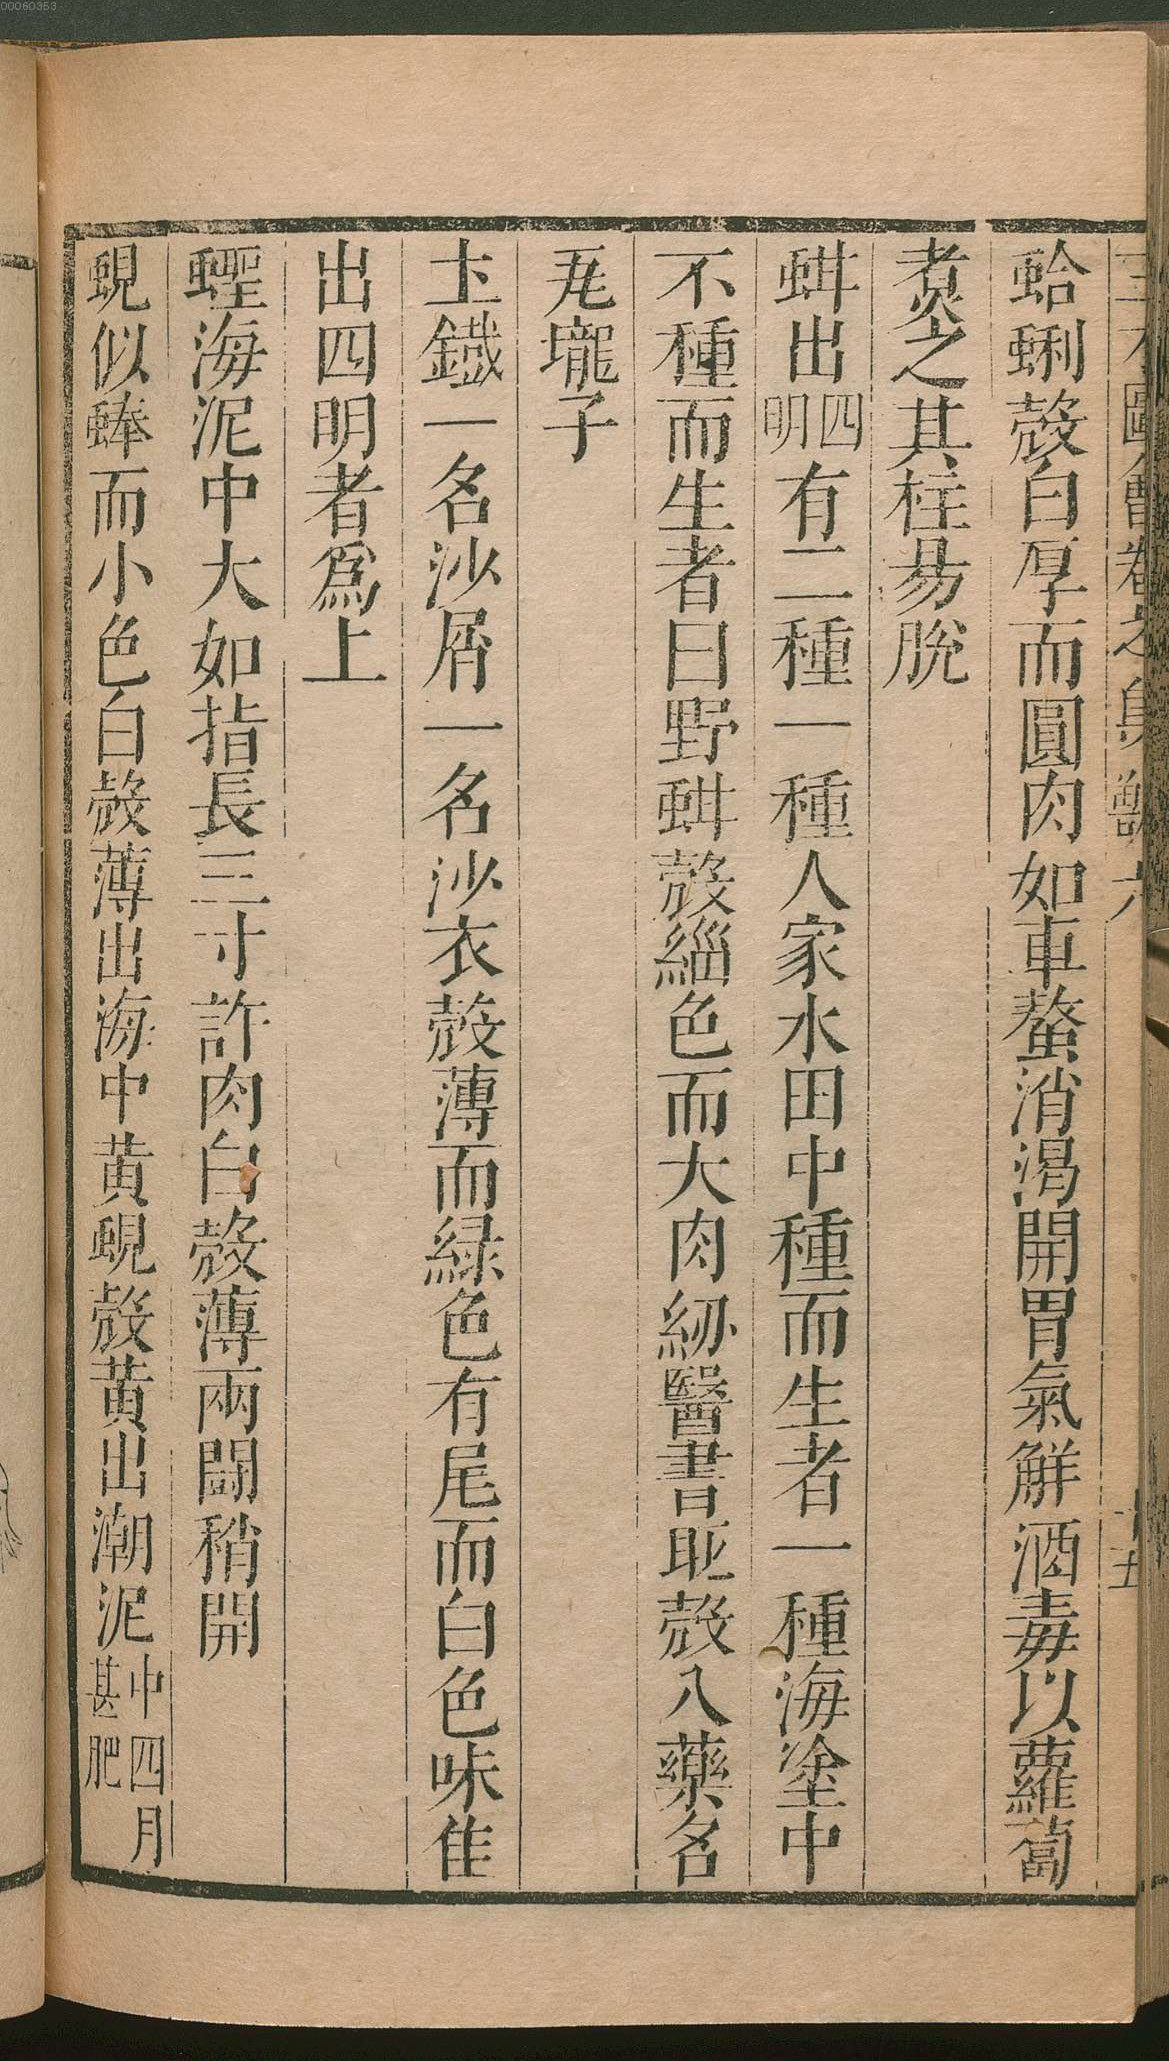 00060353
三才圖會卷之鳥獸六 十五
蛤蜊殻白厚而圓肉如車螯消渴開胃氣觧酒毒以蘿蔔
煑之其柱易脫
蚶出四明有二種一種人家水田中種而生者一種海塗中
不種而生者曰野蚶殻緇色而大肉紉醫書取殻入藥名
瓦壠子
土鐡一名沙屑一名沙衣殻薄而緑色有尾而白色味佳
出四明者為上
蟶海泥中大如指長三寸許肉白殻薄兩闘稍開
蜆似蜯而小色白殻薄出海中黄蜆殻黄出潮泥中四月甚肥